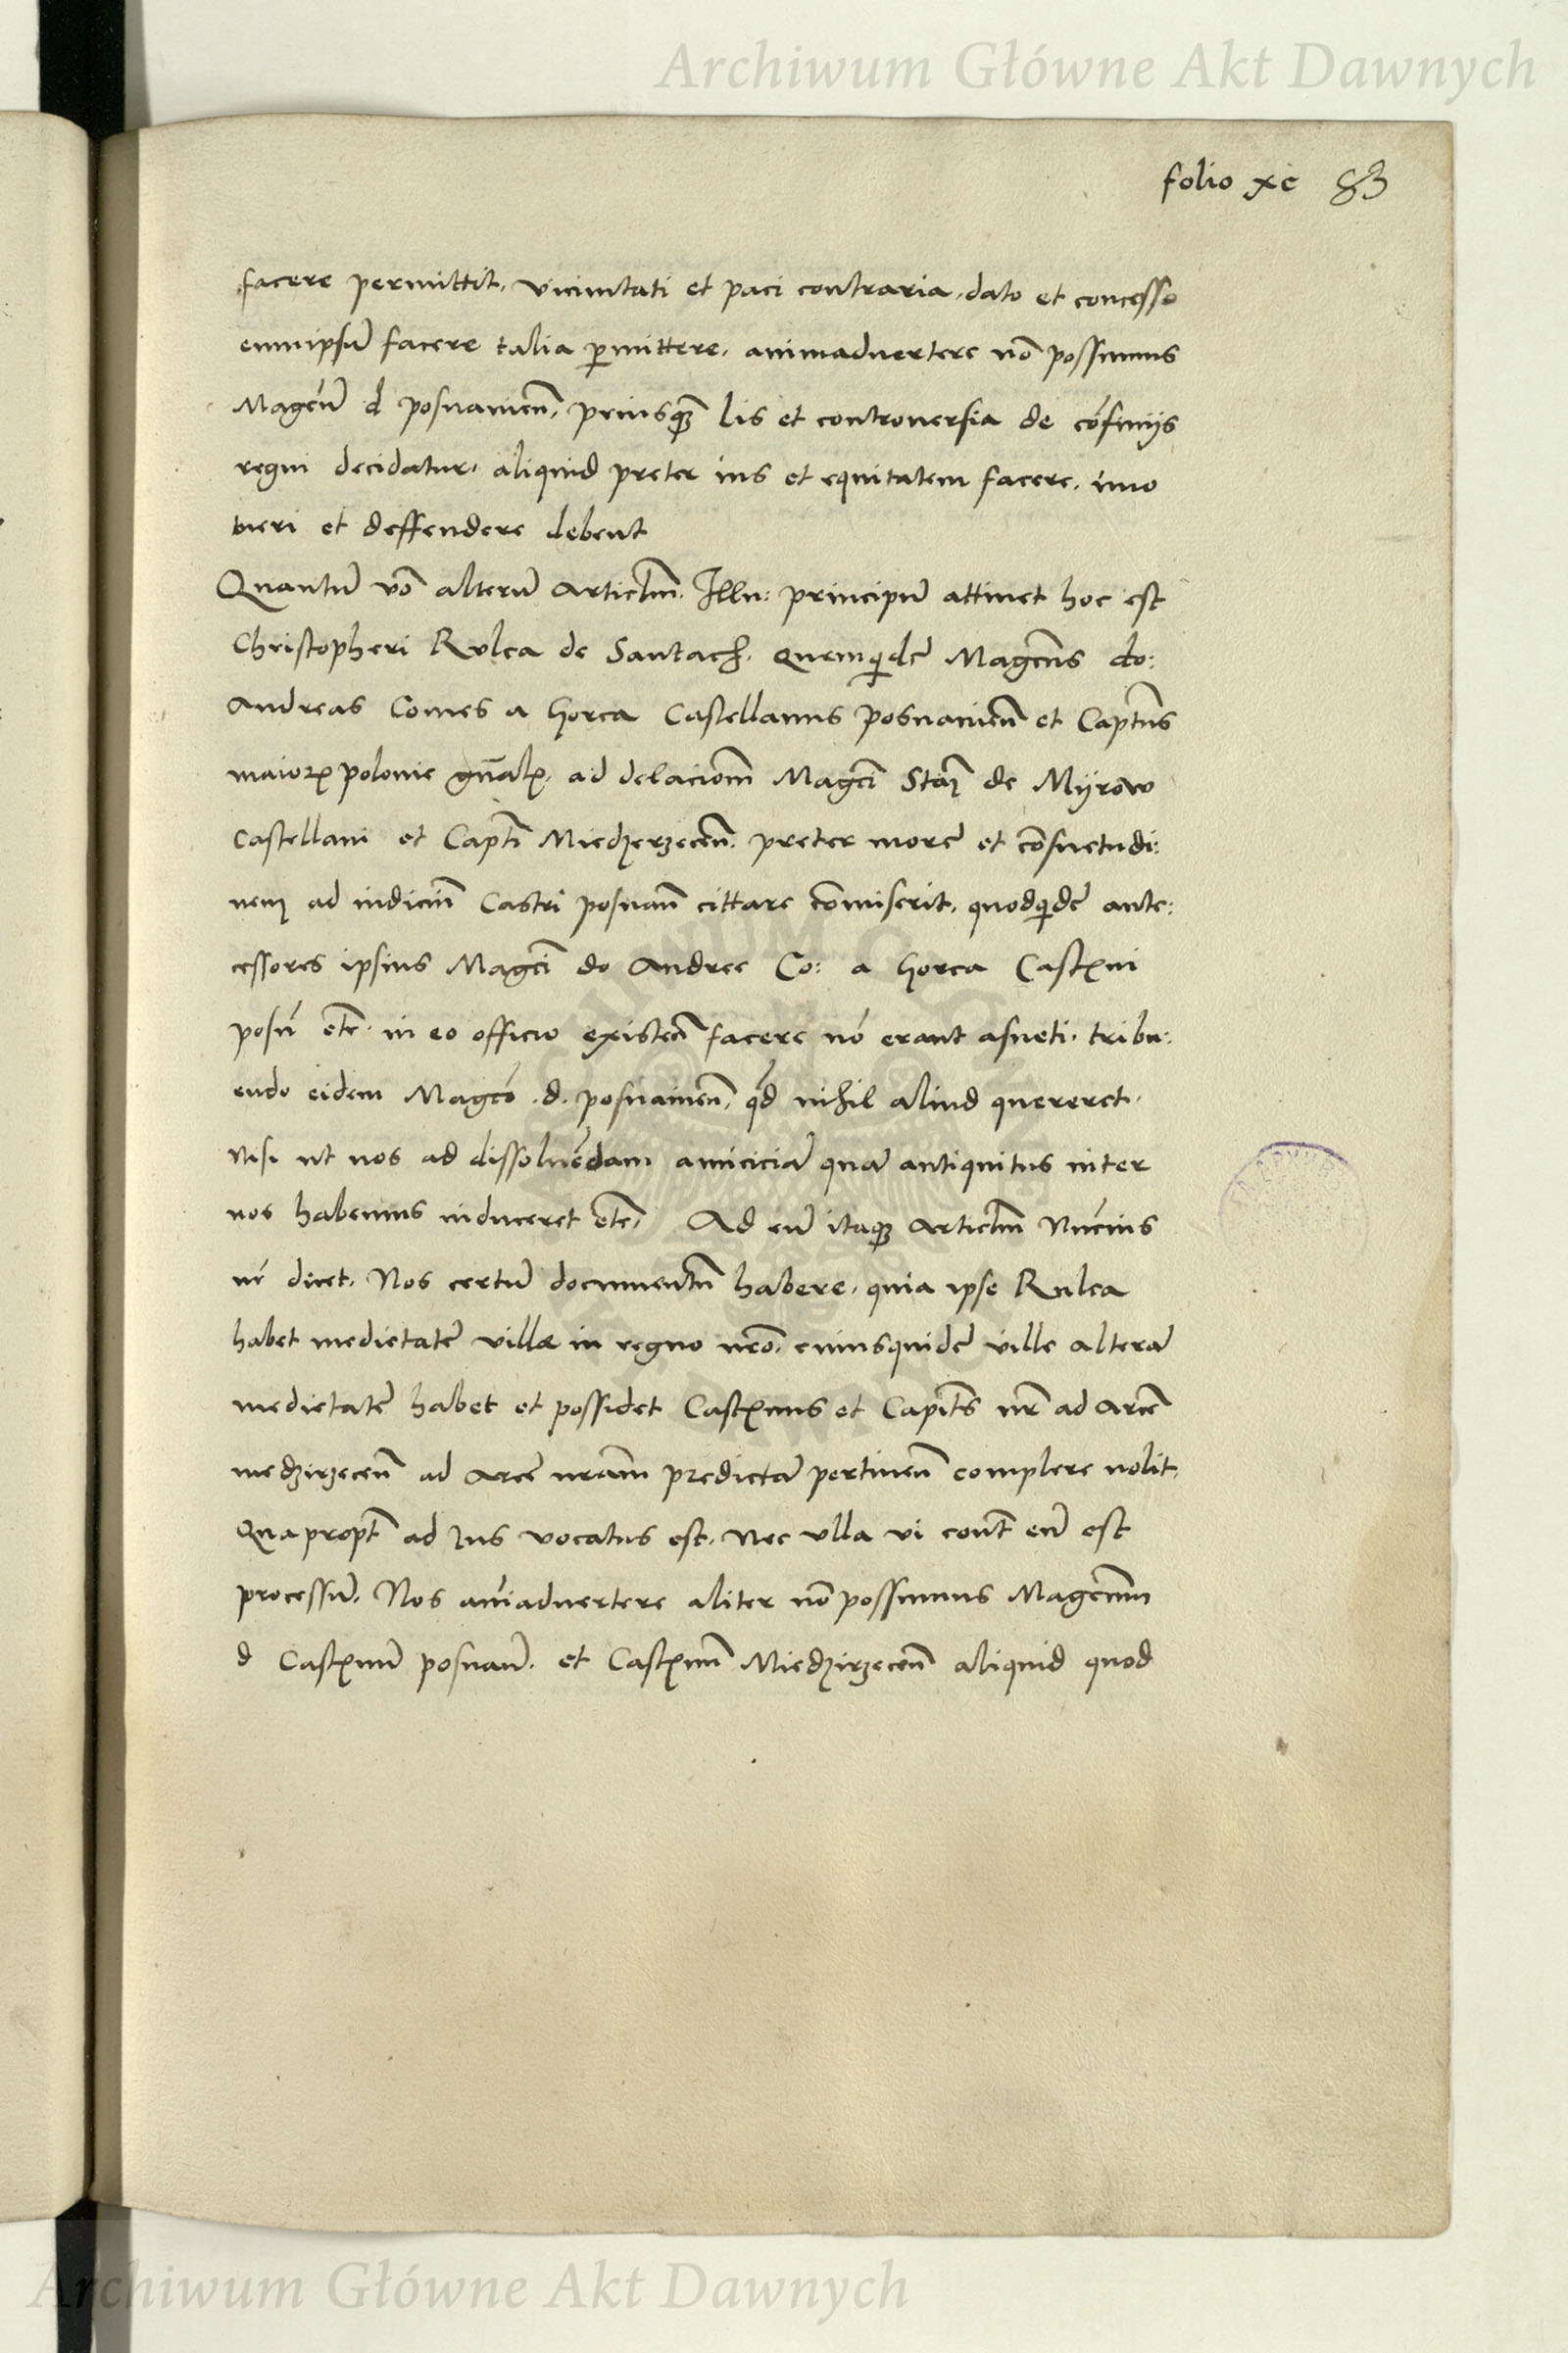 Archiwum Główne Akt Dawnych
folio xc 83
facere permittit, vicinitati et paci contraria, dato et concesso
eumipsū facere talia p̱mittere, animadvertere nō possumus
Magcū d posnanien̄, priusqȝ lis et controversia de cōfinijs
regni decidatur, aliquid preter ius et equitatem facere, imo
tueri et deffendere debent
Quantū vō alterū Articlm̄ Illu: principū attinet hoc est
Christopheri Rulca de Santach, quemqdē Magcus do:
Andreas Comes a Gorca Castellanus posnanien̄ et Captūs
maiorꝝ polonie gn̄alꝫ, ad delaciom̄ Magci Staī de Myrow
Castellani et Captī Miedzerzecen̄, preter morē et cōsuetudi:
nem ad iudiciū Castri posnan̄ cittare cōmiserit, quodqdē ante:
cessores ipsius Magci do Andree Co: a Gorca Castꝫni
posn̄ etc̄ in eo officio existen̄ facere nō erant asueti, tribu:
endo eidem Magco .d. posnanien̄, qd̄ nihil aliud quereret,
nisi ut nos ad dissoluēdam amiciciā quā antiquitus inter
nos habemus induceret etc̄, Ad eū itaqȝ Articlm̄ Nūcius
nr̄ dicet, Nos certū documentū habere, quia ipse Rulca
habet medietatē villæ in regno nr̄o, cuiusquidē ville alterā
medietatē habet et possidet Castꝫnus et Capits nr̄ ad Arcē
medzirzecen̄ ad Arcē nram̄ predictā pertinen̄ complere nolit,
Quapropt̄ ad Jus vocatus est, Nec ulla vi cont̄ eū est
processū, Nos aīadvertere aliter nō possumus Magcum̄
d Castꝫnū posnan̄, et Castꝫnū Miedzirzecen̄ aliquid quod
Archiwum Główne Akt Dawnych